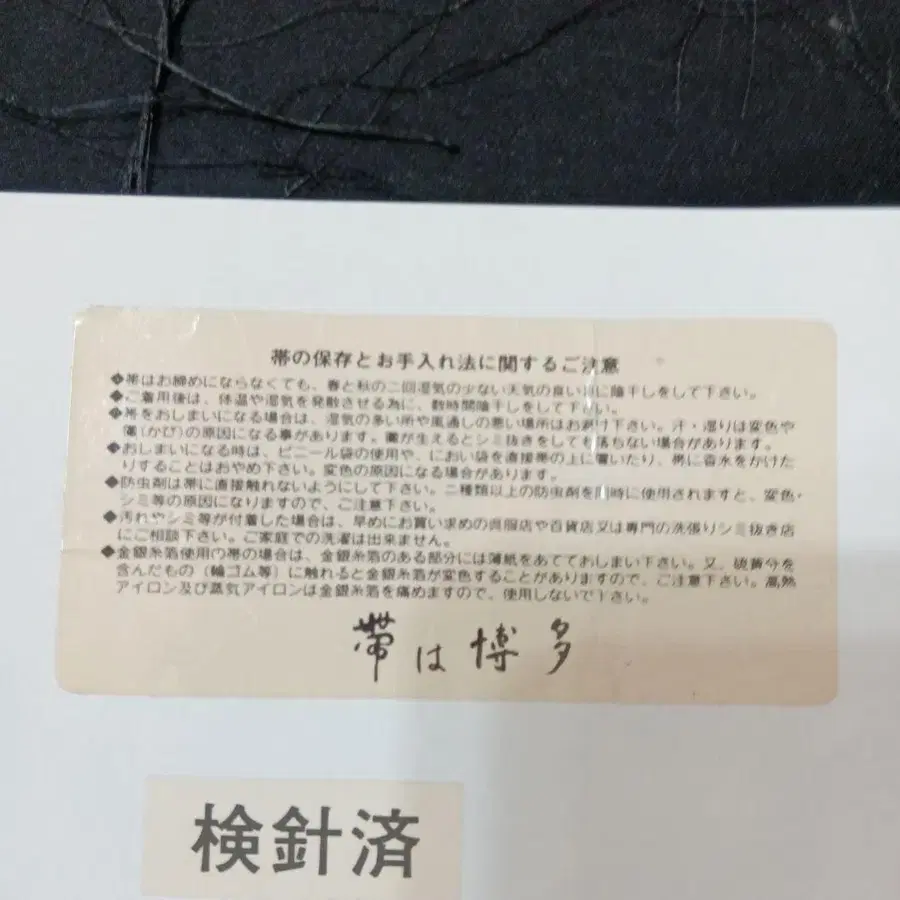 帯の保存とお手入れ法に関するご注意
◆帯はお締めにならなくても、春と秋の二回湿気の少ない天気の良い日に陰干しをして下さい。
◆ご着用後は、体温や湿気を発散させる為に、数時間陰干しをして下さい。
◆帯をおしまいになる場合は、湿気の多い所や風通しの悪い場所はお避け下さい。汗・湿りは変色や
黴(かび)の原因になる事があります。黴が生えるとシミ抜きをしても落ちない場合があります。
◆おしまいになる時は、ビニール袋の使用や、におい袋を直接帯の上に置いたり、帯に香水をかけた
りすることはおやめ下さい。変色の原因になる場合があります。
◆防虫剤は帯に直接触れないようにして下さい。二種類以上の防虫剤を同時に使用されますと、変色・
シミ等の原因になりますので、ご注意下さい。
◆汚れやシミ等が付着した場合は、早めにお買い求めの呉服店や百貨店又は専門の洗張りシミ抜き店
にご相談下さい。ご家庭での洗濯は出来ません。
◆金銀糸箔使用の帯の場合は、金銀糸箔のある部分には薄紙をあてておしまい下さい。又、硫黄分を
含んだもの（輪ゴム等）に触れると金銀糸箔が変色することがありますので、ご注意下さい。高熱
アイロン及び蒸気アイロンは金銀糸箔を痛めますので、使用しないで下さい。
帯は博多
検針済